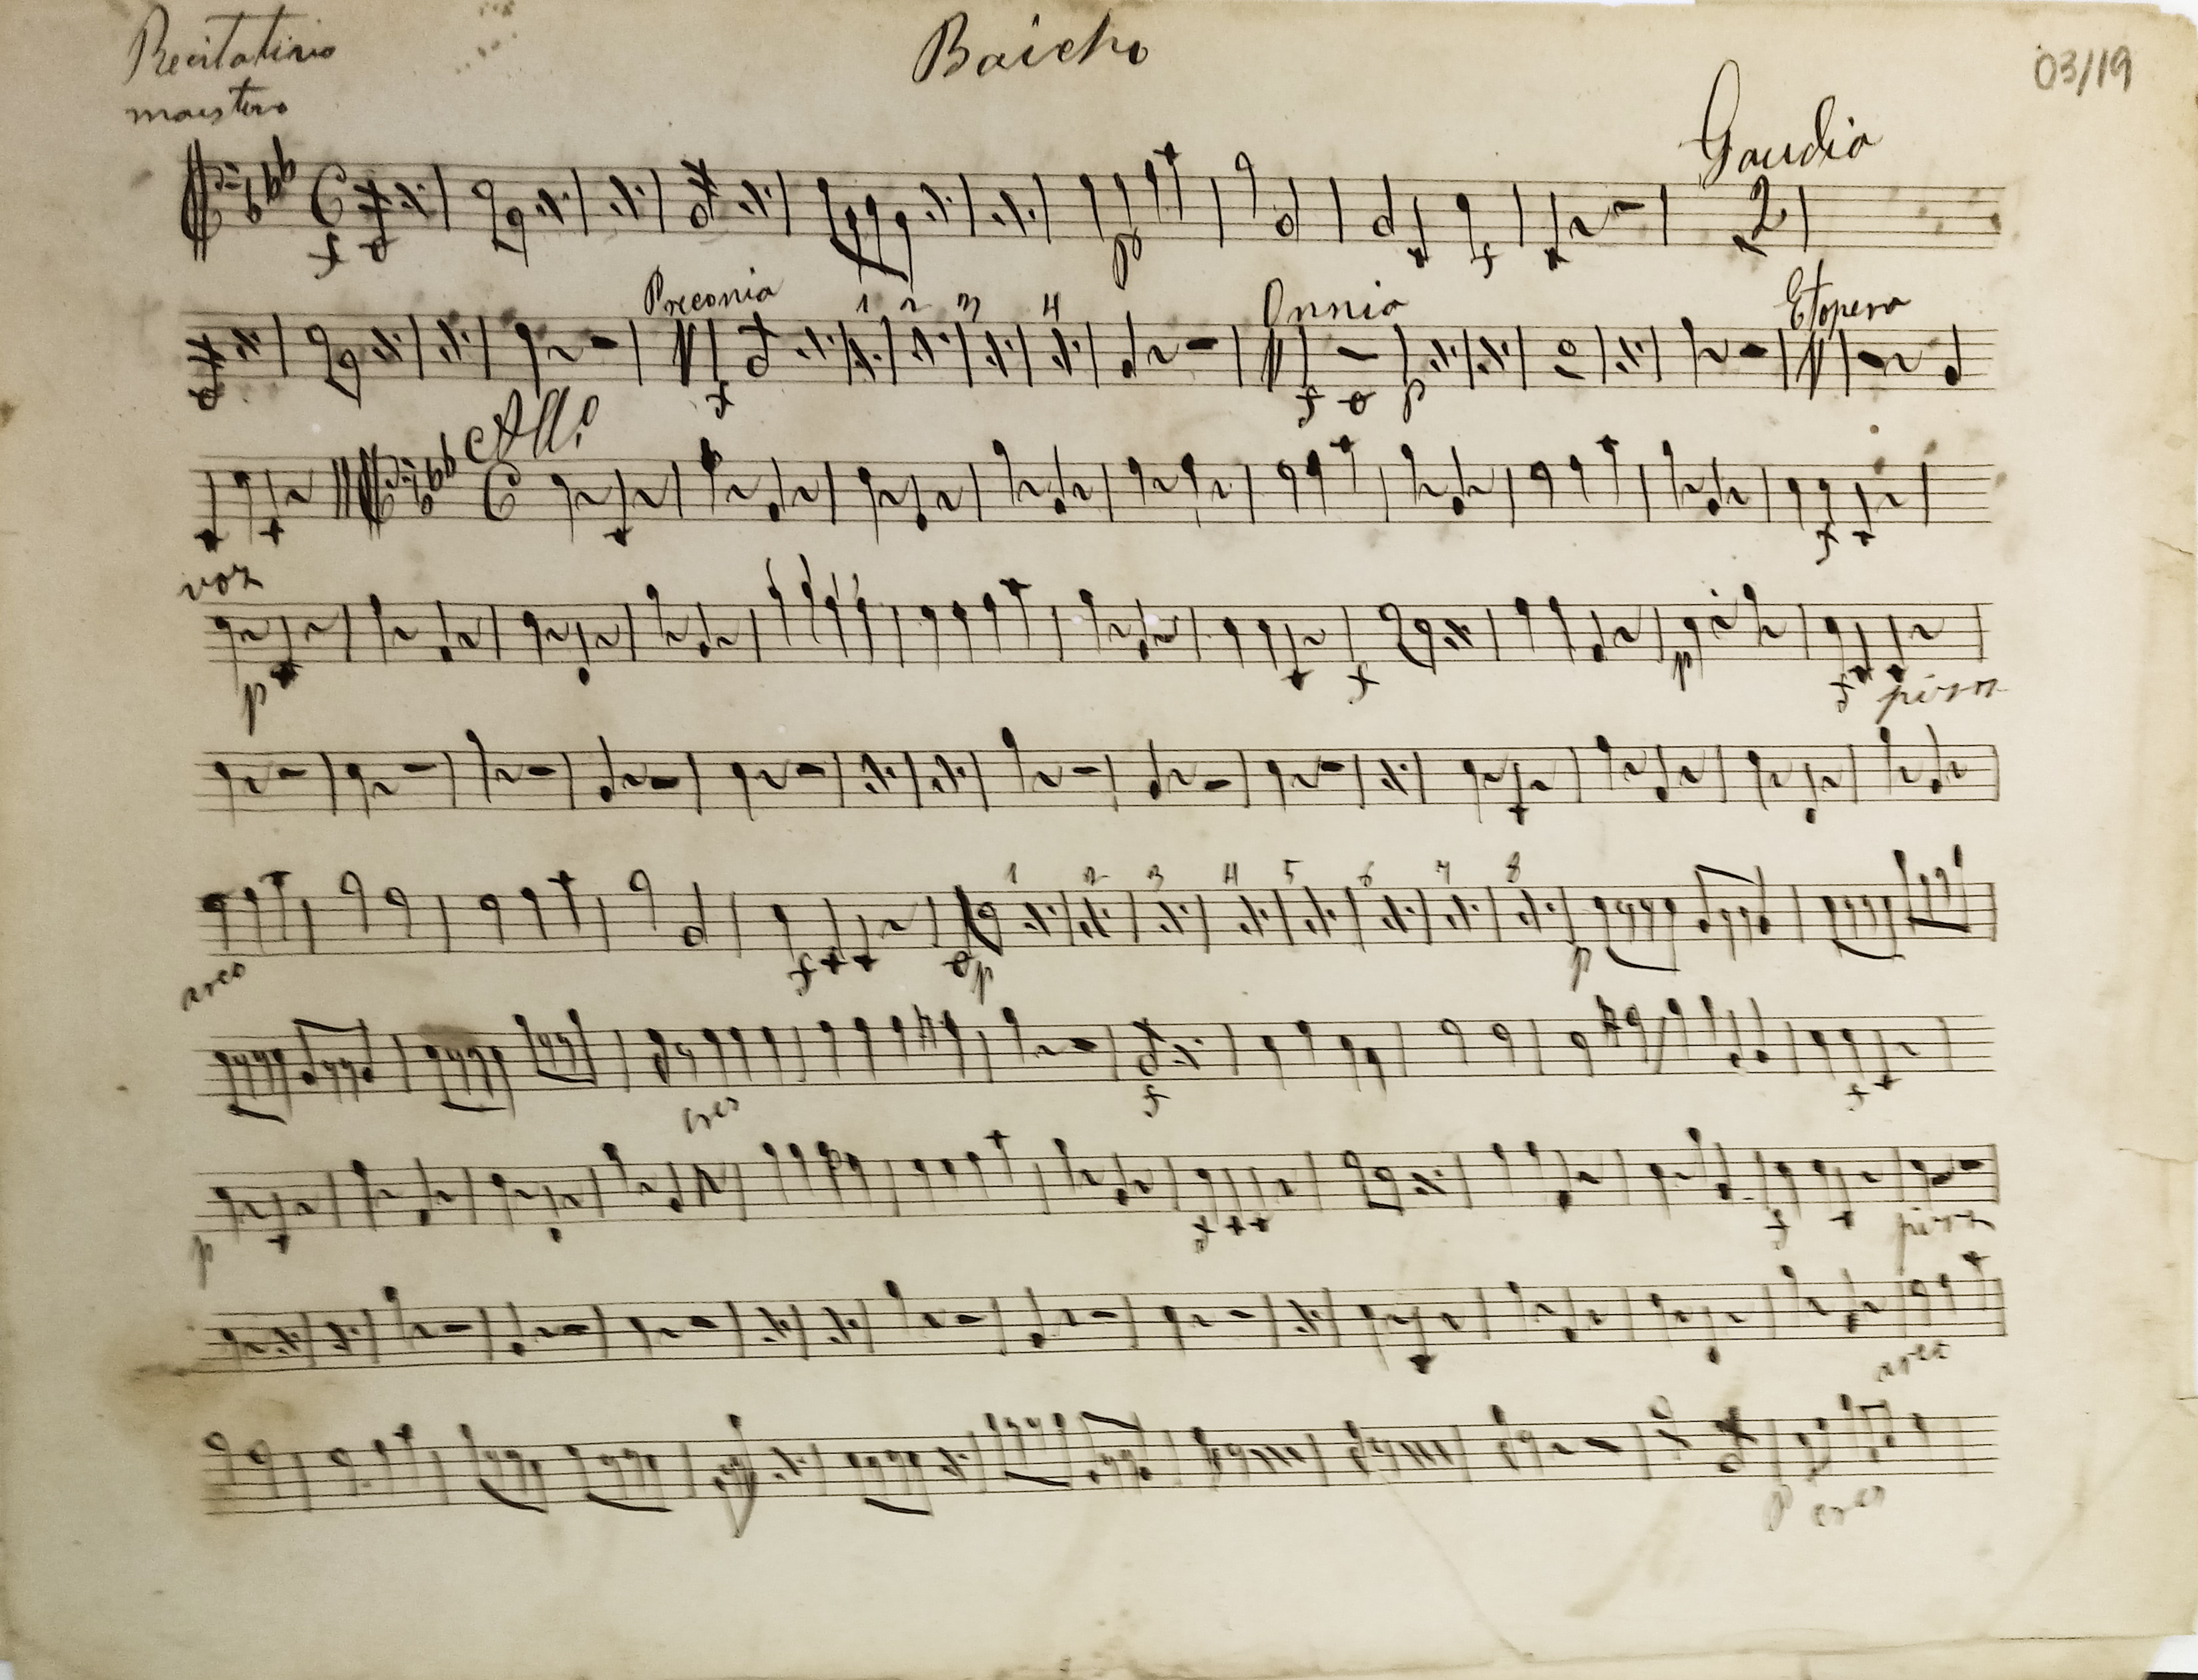 Recitativo
Baicho
03/19
maestuo
Gaudia
f
p
f
2
Preconia
1 2 3 4
Onnia
Etopera
f
f
p
All.o
f
voz
p
f
p
f
pizz
1 2 3 4 5 6 7 8
f
p
p
arco
cres
f
f
p
f
f
pizz
arco
p
cres